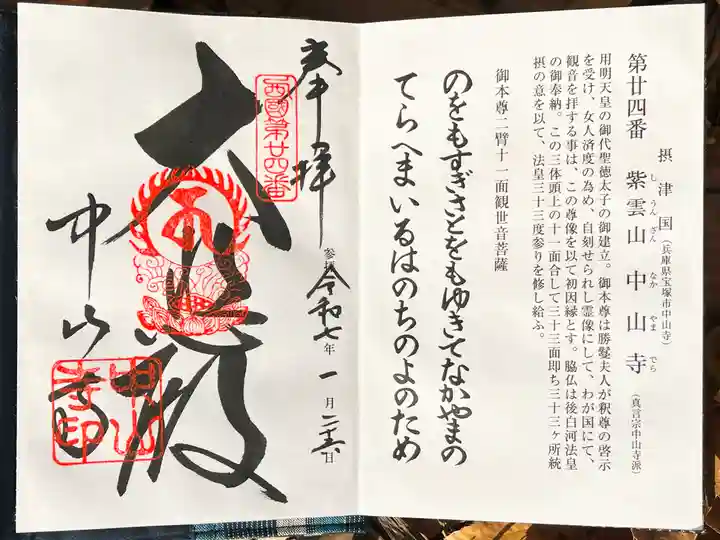 第廿四番
摂津国（兵庫県宝塚市中山寺）
紫雲山 中山寺（真言宗中山寺派）
しうんざん なかやまでら
用明天皇の御代聖徳太子の御建立。御本尊は勝鬘夫人が釈尊の啓示
を受け、女人済度の為め、自刻せられし霊像にして、わが国にて、
観音を拝する事は、この尊像を以て初因縁とす。脇仏は後白河法皇
の御奉納。この三体頭上の十一面合して三十三面即ち三十三ヶ所統
摂の意を以て、法皇三十三度参りを修し給ふ。
御本尊二臂十一面観世音菩薩
のをもすぎさとをもゆきてなかやまの
てらへまいるはのちのよのため
奉拝
西國第廿四番
参拝 令和七年 一月二十五日
大悲殿
中山寺
中山寺印